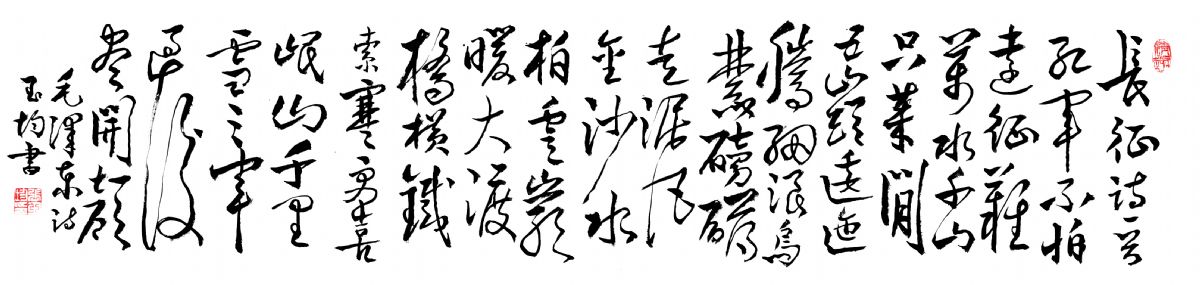 長征詩一首
紅軍不怕
遠征難
萬水千山
只等閒
五嶺逶迤
騰細浪烏
蒙磅礴
走泥丸
金沙水
拍雲崖
暖大渡
橋橫鐵
索寒更喜
岷山千里
雪三軍
過後
盡開顏
毛澤東詩
玉均書